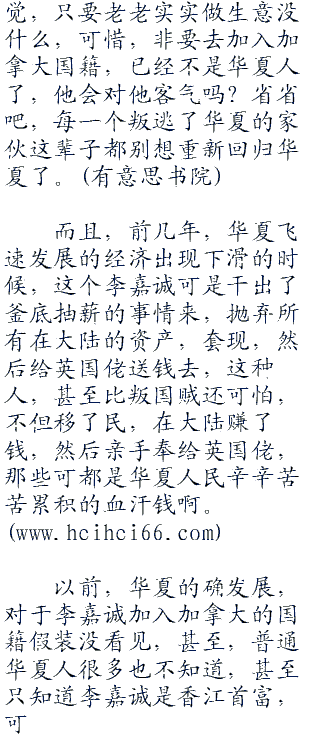 觉，只要老老实实做生意没
什么，可惜，非要去加入加
拿大国籍，已经不是华夏人
了，他会对他客气吗？省省
吧，每一个叛逃了华夏的家
伙这辈子都别想重新回归华
夏了。(有意思书院)
而且，前几年，华夏飞
速发展的经济出现下滑的时
候，这个李嘉诚可是干出了
釜底抽薪的事情来，抛弃所
有在大陆的资产，套现，然
后给英国佬送钱去，这种
人，甚至比叛国贼还可怕，
不但移了民，在大陆赚了
钱，然后亲手奉给英国佬，
那些可都是华夏人民辛辛苦
苦累积的血汗钱啊。
(www.hcihci66.com)
以前，华夏的确发展，
对于李嘉诚加入加拿大的国
籍假装没看见，甚至，普通
华夏人很多也不知道，甚至
只知道李嘉诚是香江首富，
可